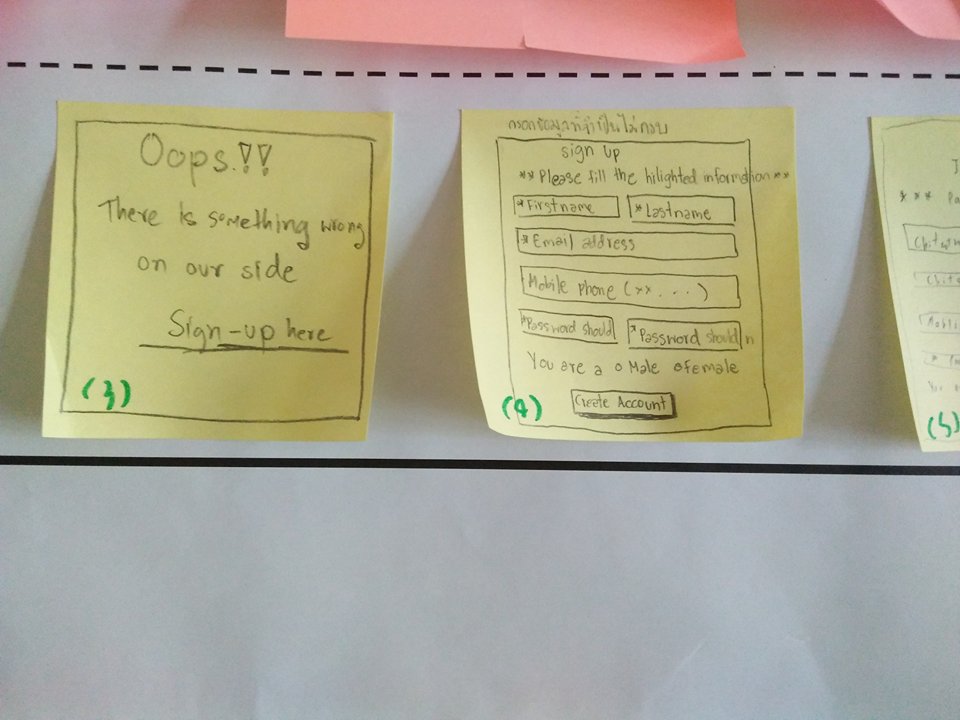 Oops.!!
There is something wrong
on our side
Sign-up here
(3)
กรอกข้อมูลที่จำเป็นไม่ครบ
sign up
** Please fill the hilighted information **
* Firstname
* Lastname
* Email address
Mobile phone (xx . . . )
*Password should
* Password should n
You are a o Male o female
Create Account
(4)
J
*** Pa
Mobli
(5)